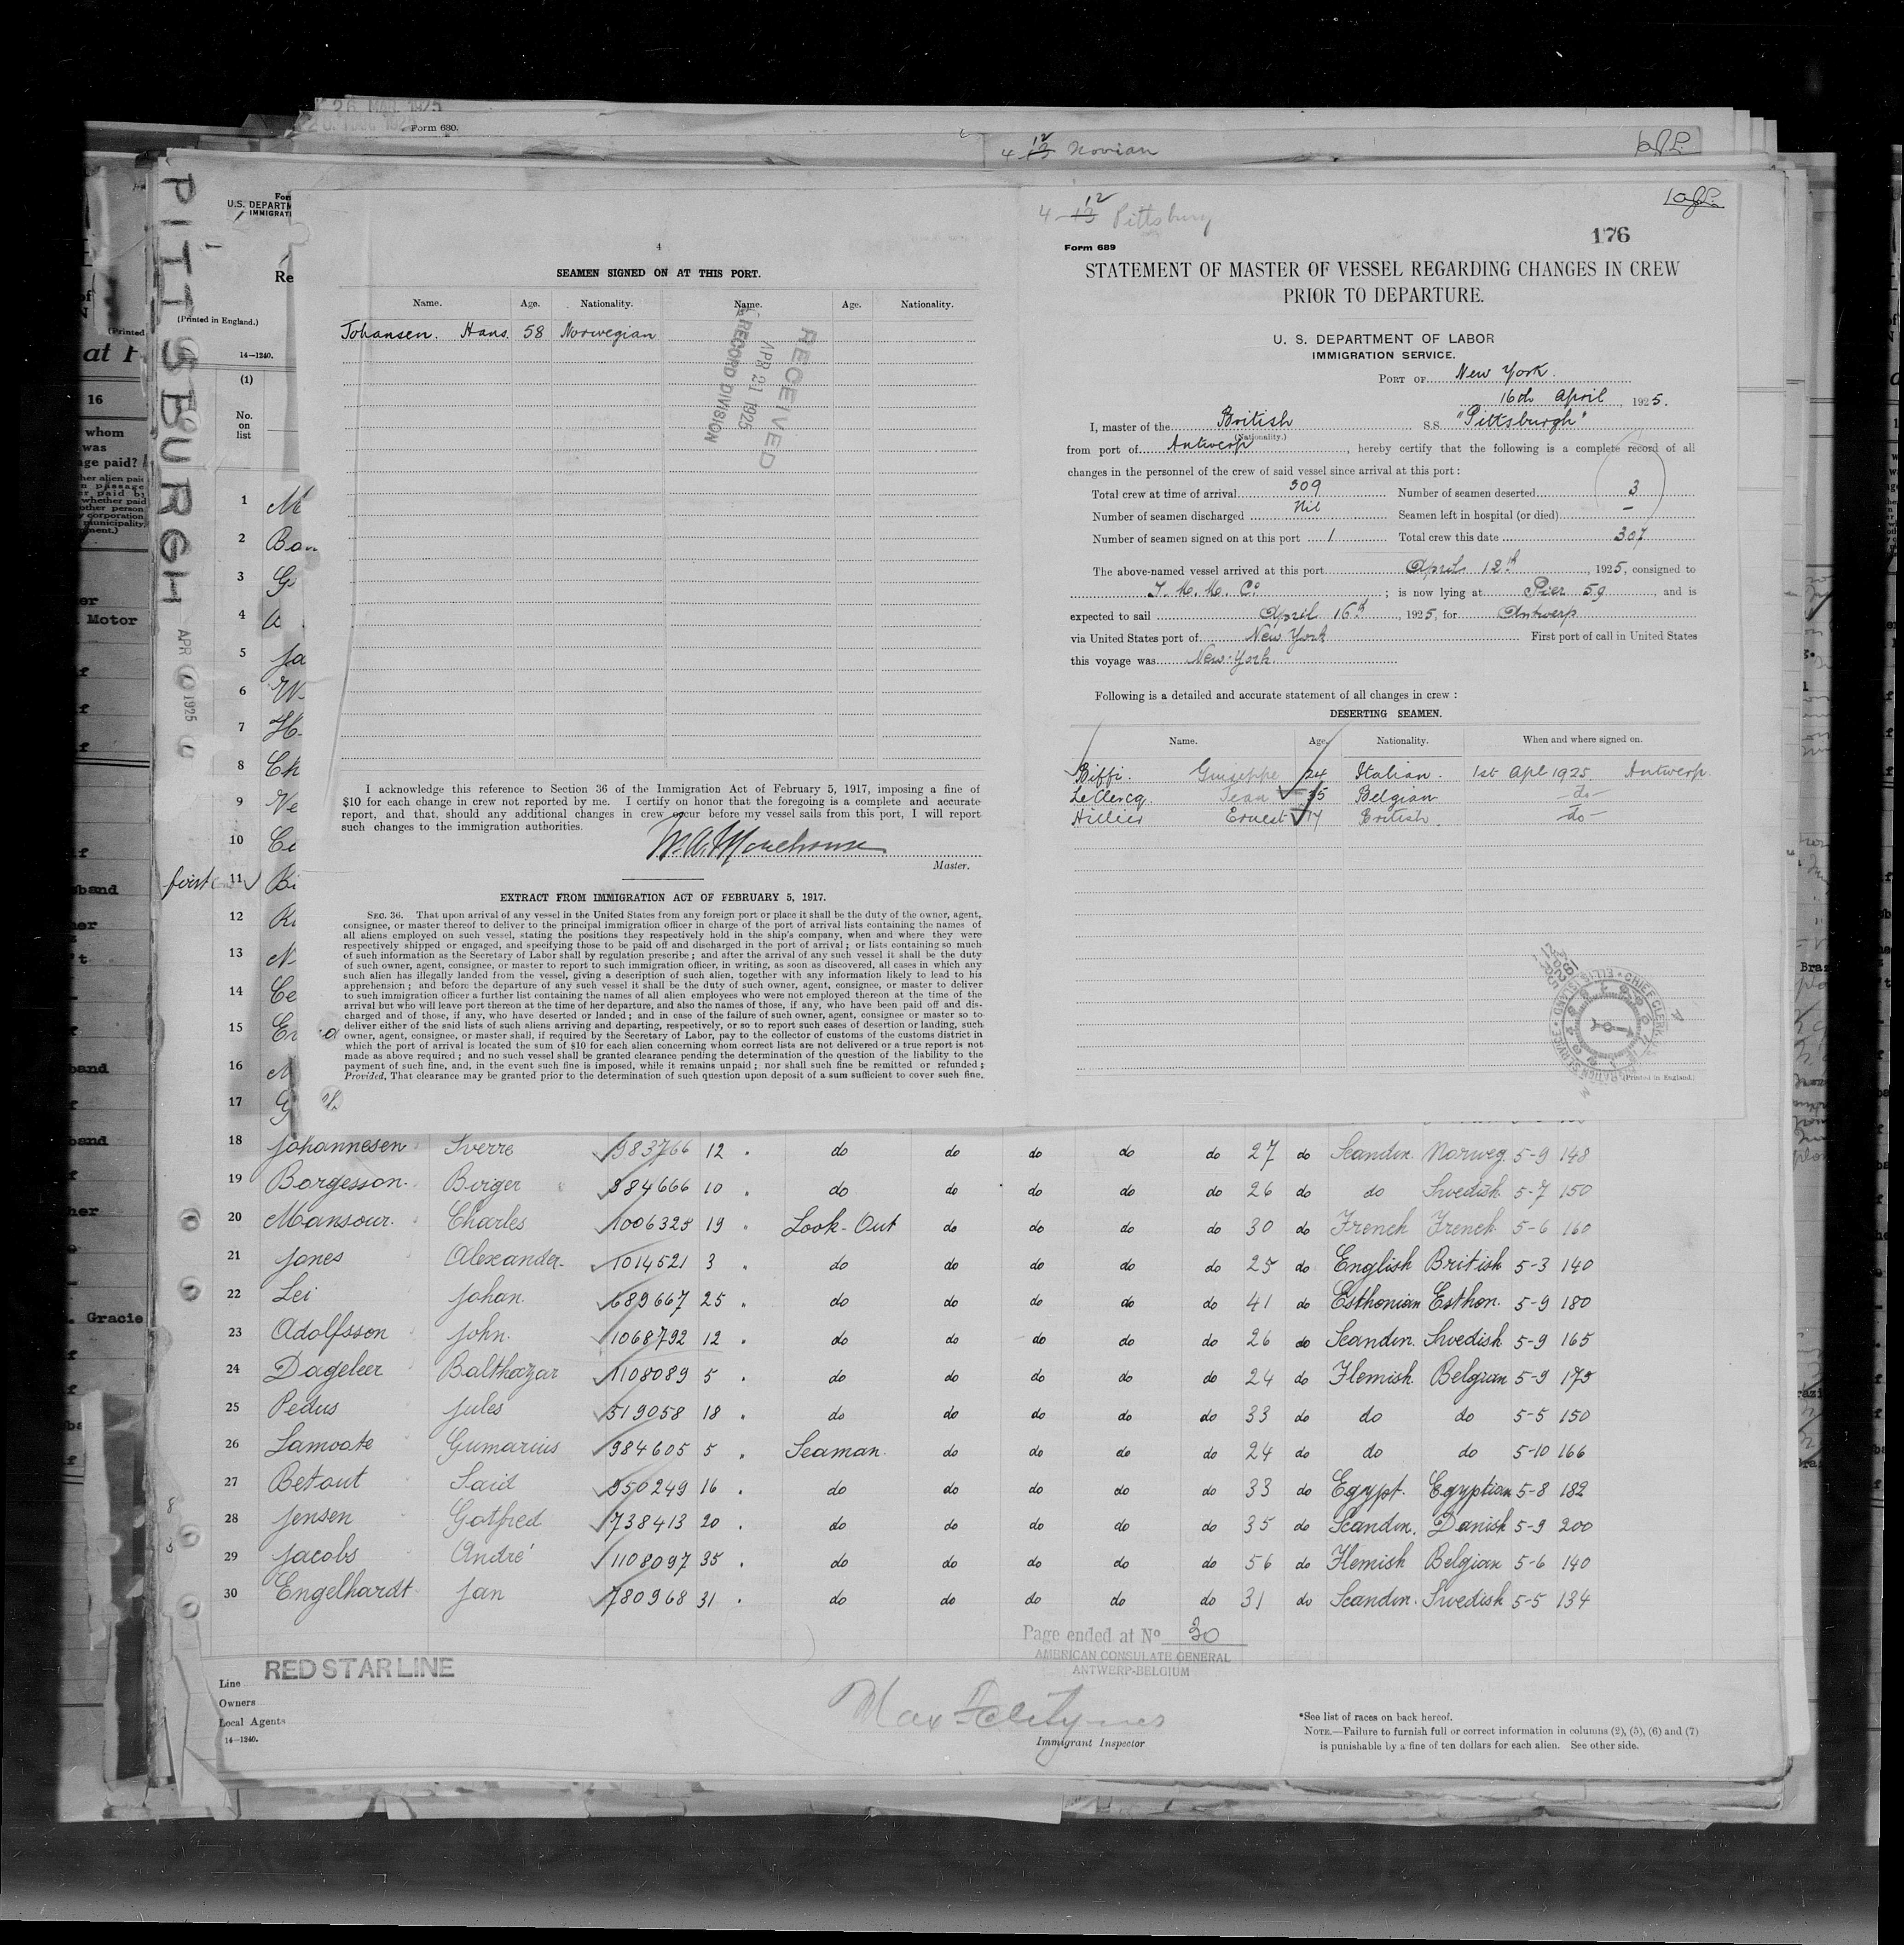 26 MAR 1925
Form 680.
4 13 12 Novian
PITTSBURGH
APR 1925
U.S. DEPARTM
IMMIGRATI
Re
(Printed in England.)
14—1240.
(1)
No.
on
list
4
SEAMEN SIGNED ON AT THIS PORT.
Name. Age. Nationality. Name. Age. Nationality.
Johansen. Hans. 58 Norwegian
RECEIVED
APR 21 1925
RECORD DIVISION
I acknowledge this reference to Section 36 of the Immigration Act of February 5, 1917, imposing a fine of
$10 for each change in crew not reported by me. I certify on honor that the foregoing is a complete and accurate
report, and that, should any additional changes in crew occur before my vessel sails from this port, I will report
such changes to the immigration authorities.
Master.
EXTRACT FROM IMMIGRATION ACT OF FEBRUARY 5, 1917.
SEC. 36. That upon arrival of any vessel in the United States from any foreign port or place it shall be the duty of the owner, agent,
consignee, or master thereof to deliver to the principal immigration officer in charge of the port of arrival lists containing the names of
all aliens employed on such vessel, stating the positions they respectively hold in the ship's company, when and where they were
respectively shipped or engaged, and specifying those to be paid off and discharged in the port of arrival; or lists containing so much
of such information as the Secretary of Labor shall by regulation prescribe; and after the arrival of any such vessel it shall be the duty
of such owner, agent, consignee, or master to report to such immigration officer, in writing, as soon as discovered, all cases in which any
such alien has illegally landed from the vessel, giving a description of such alien, together with any information likely to lead to his
apprehension; and before the departure of any such vessel it shall be the duty of such owner, agent, consignee, or master to deliver
to such immigration officer a further list containing the names of all alien employees who were not employed thereon at the time of the
arrival but who will leave port thereon at the time of her departure, and also the names of those, if any, who have been paid off and dis-
charged and of those, if any, who have deserted or landed; and in case of the failure of such owner, agent, consignee or master so to
deliver either of the said lists of such aliens arriving and departing, respectively, or so to report such cases of desertion or landing, such
owner, agent, consignee, or master shall, if required by the Secretary of Labor, pay to the collector of customs of the customs district in
which the port of arrival is located the sum of $10 for each alien concerning whom correct lists are not delivered or a true report is not
made as above required; and no such vessel shall be granted clearance pending the determination of the question of the liability to the
payment of such fine, and, in the event such fine is imposed, while it remains unpaid; nor shall such fine be remitted or refunded;
Provided, That clearance may be granted prior to the determination of such question upon deposit of a sum sufficient to cover such fine.
4 13 12 Pittsburg
176
Form 689
STATEMENT OF MASTER OF VESSEL REGARDING CHANGES IN CREW
PRIOR TO DEPARTURE.
U. S. DEPARTMENT OF LABOR
IMMIGRATION SERVICE.
PORT OF New York.
16th April, 1925.
I, master of the British S.S. "Pittsburgh"
(Nationality.)
from port of Antwerp, hereby certify that the following is a complete record of all
changes in the personnel of the crew of said vessel since arrival at this port:
Total crew at time of arrival 309 Number of seamen deserted 3
Number of seamen discharged Nil Seamen left in hospital (or died) —
Number of seamen signed on at this port 1 Total crew this date 307
The above-named vessel arrived at this port April 12th, 1925, consigned to
I. M. M. Co; is now lying at Pier 59, and is
expected to sail April 16th, 1925, for Antwerp
via United States port of New York First port of call in United States
this voyage was New York.
Following is a detailed and accurate statement of all changes in crew:
DESERTING SEAMEN.
Name. Age. Nationality. When and where signed on.
Biffi. Giuseppe 24 Italian. 1st Apl 1925 Antwerp
LeClercq. Jean 35 Belgian —do—
Hillier Ernest British —do—
(Printed in England.)
1
2
3
4
5
6
7
8
9
10
11
12
13
14
15
16
17
18 Johannesen Sverre 983766 12 " do do do do do 27 do Scandin. Norweg. 5-9 148
19 Borgesson Birger 984666 10 " do do do do do 26 do do Swedish 5-7 150
20 Mansour. Charles 1006325 19 " Look-Out do do do do 30 do French French 5-6 160
21 Jones Alexander 1014521 3 " do do do do do 25 do English British 5-3 140
22 Lei Johan 689667 25 " do do do do do 41 do Esthonian Esthon. 5-9 180
23 Adolfsson John. 1068792 12 " do do do do do 26 do Scandin. Swedish 5-9 165
24 Dageleer Balthazar 1108089 5 " do do do do do 24 do Flemish Belgian 5-9 175
25 Pedus Jules 519058 18 " do do do do do 33 do do do 5-5 150
26 Lamoate Gumarius 984605 5 " Seaman. do do do do 24 do do do 5-10 166
27 Betout Said 950249 16 " do do do do do 33 do Egypt. Egyptian 5-8 182
28 Jensen Gotfred 738413 20 " do do do do do 35 do Scandin. Danish 5-9 200
29 Jacobs André 1108097 35 " do do do do do 56 do Flemish Belgian 5-6 140
30 Engelhardt Jan 780968 31 " do do do do do 31 do Scandin. Swedish 5-5 134
Page ended at No 30
AMERICAN CONSULATE GENERAL
ANTWERP-BELGIUM
Line RED STAR LINE
Owners
Local Agents
14—1240.
Immigrant Inspector
*See list of races on back hereof.
NOTE.—Failure to furnish full or correct information in columns (2), (5), (6) and (7)
is punishable by a fine of ten dollars for each alien. See other side.